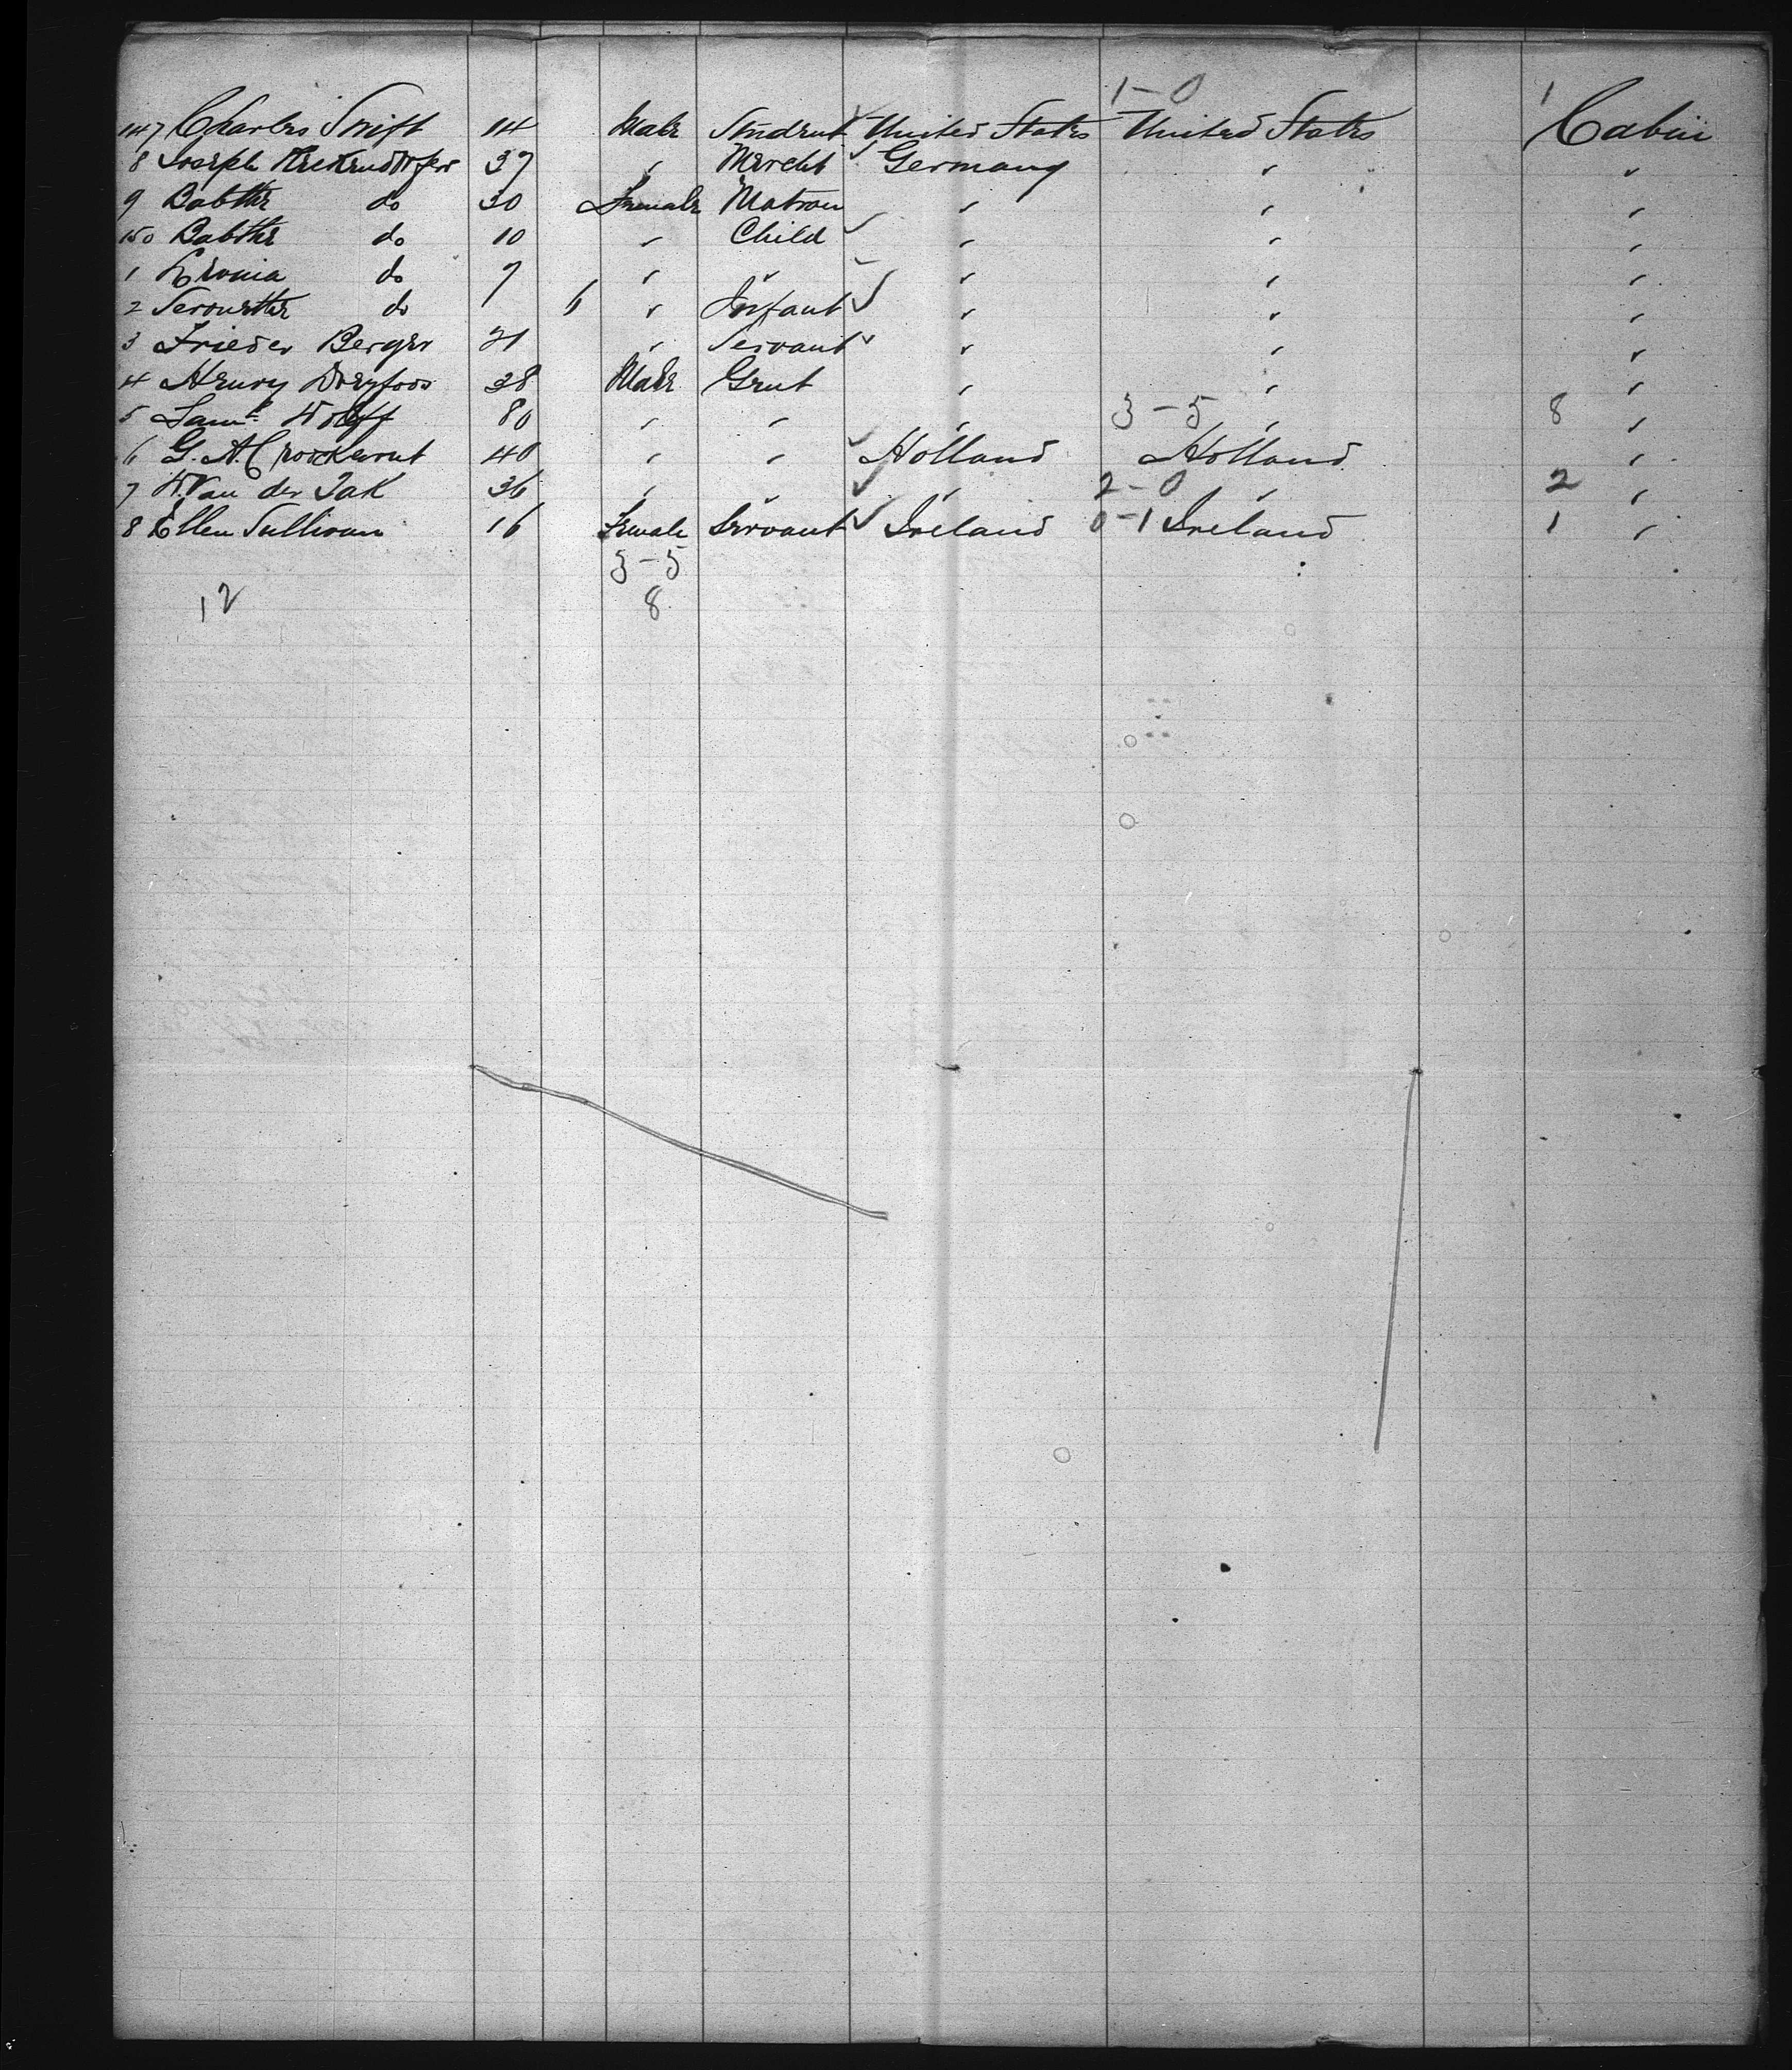 1-0 1
147 Charles Swift 14 Male Student United States United States Cabin
8 Joseph 37 " Mercht Germany " "
9 Babtte do 30 Female Matron " " "
150 Babtte do 10 " Child " " "
1 do 7 " " " " "
2 do 6 " Infant " " "
3 Frieder Berger 21 " Servant " " "
4 Henry Dreyfoos 38 Male Gent " " "
5 Saml Wolff 80 " " " 3-5 " 8 "
6 G. A. Crookewit 40 " " Holland Holland "
7 W. Van der Jak 36 " " " 2-0 " 2 "
8 Ellen Sullivan 16 Female Servant Ireland 0-1 Ireland 1 "
3-5
12 8